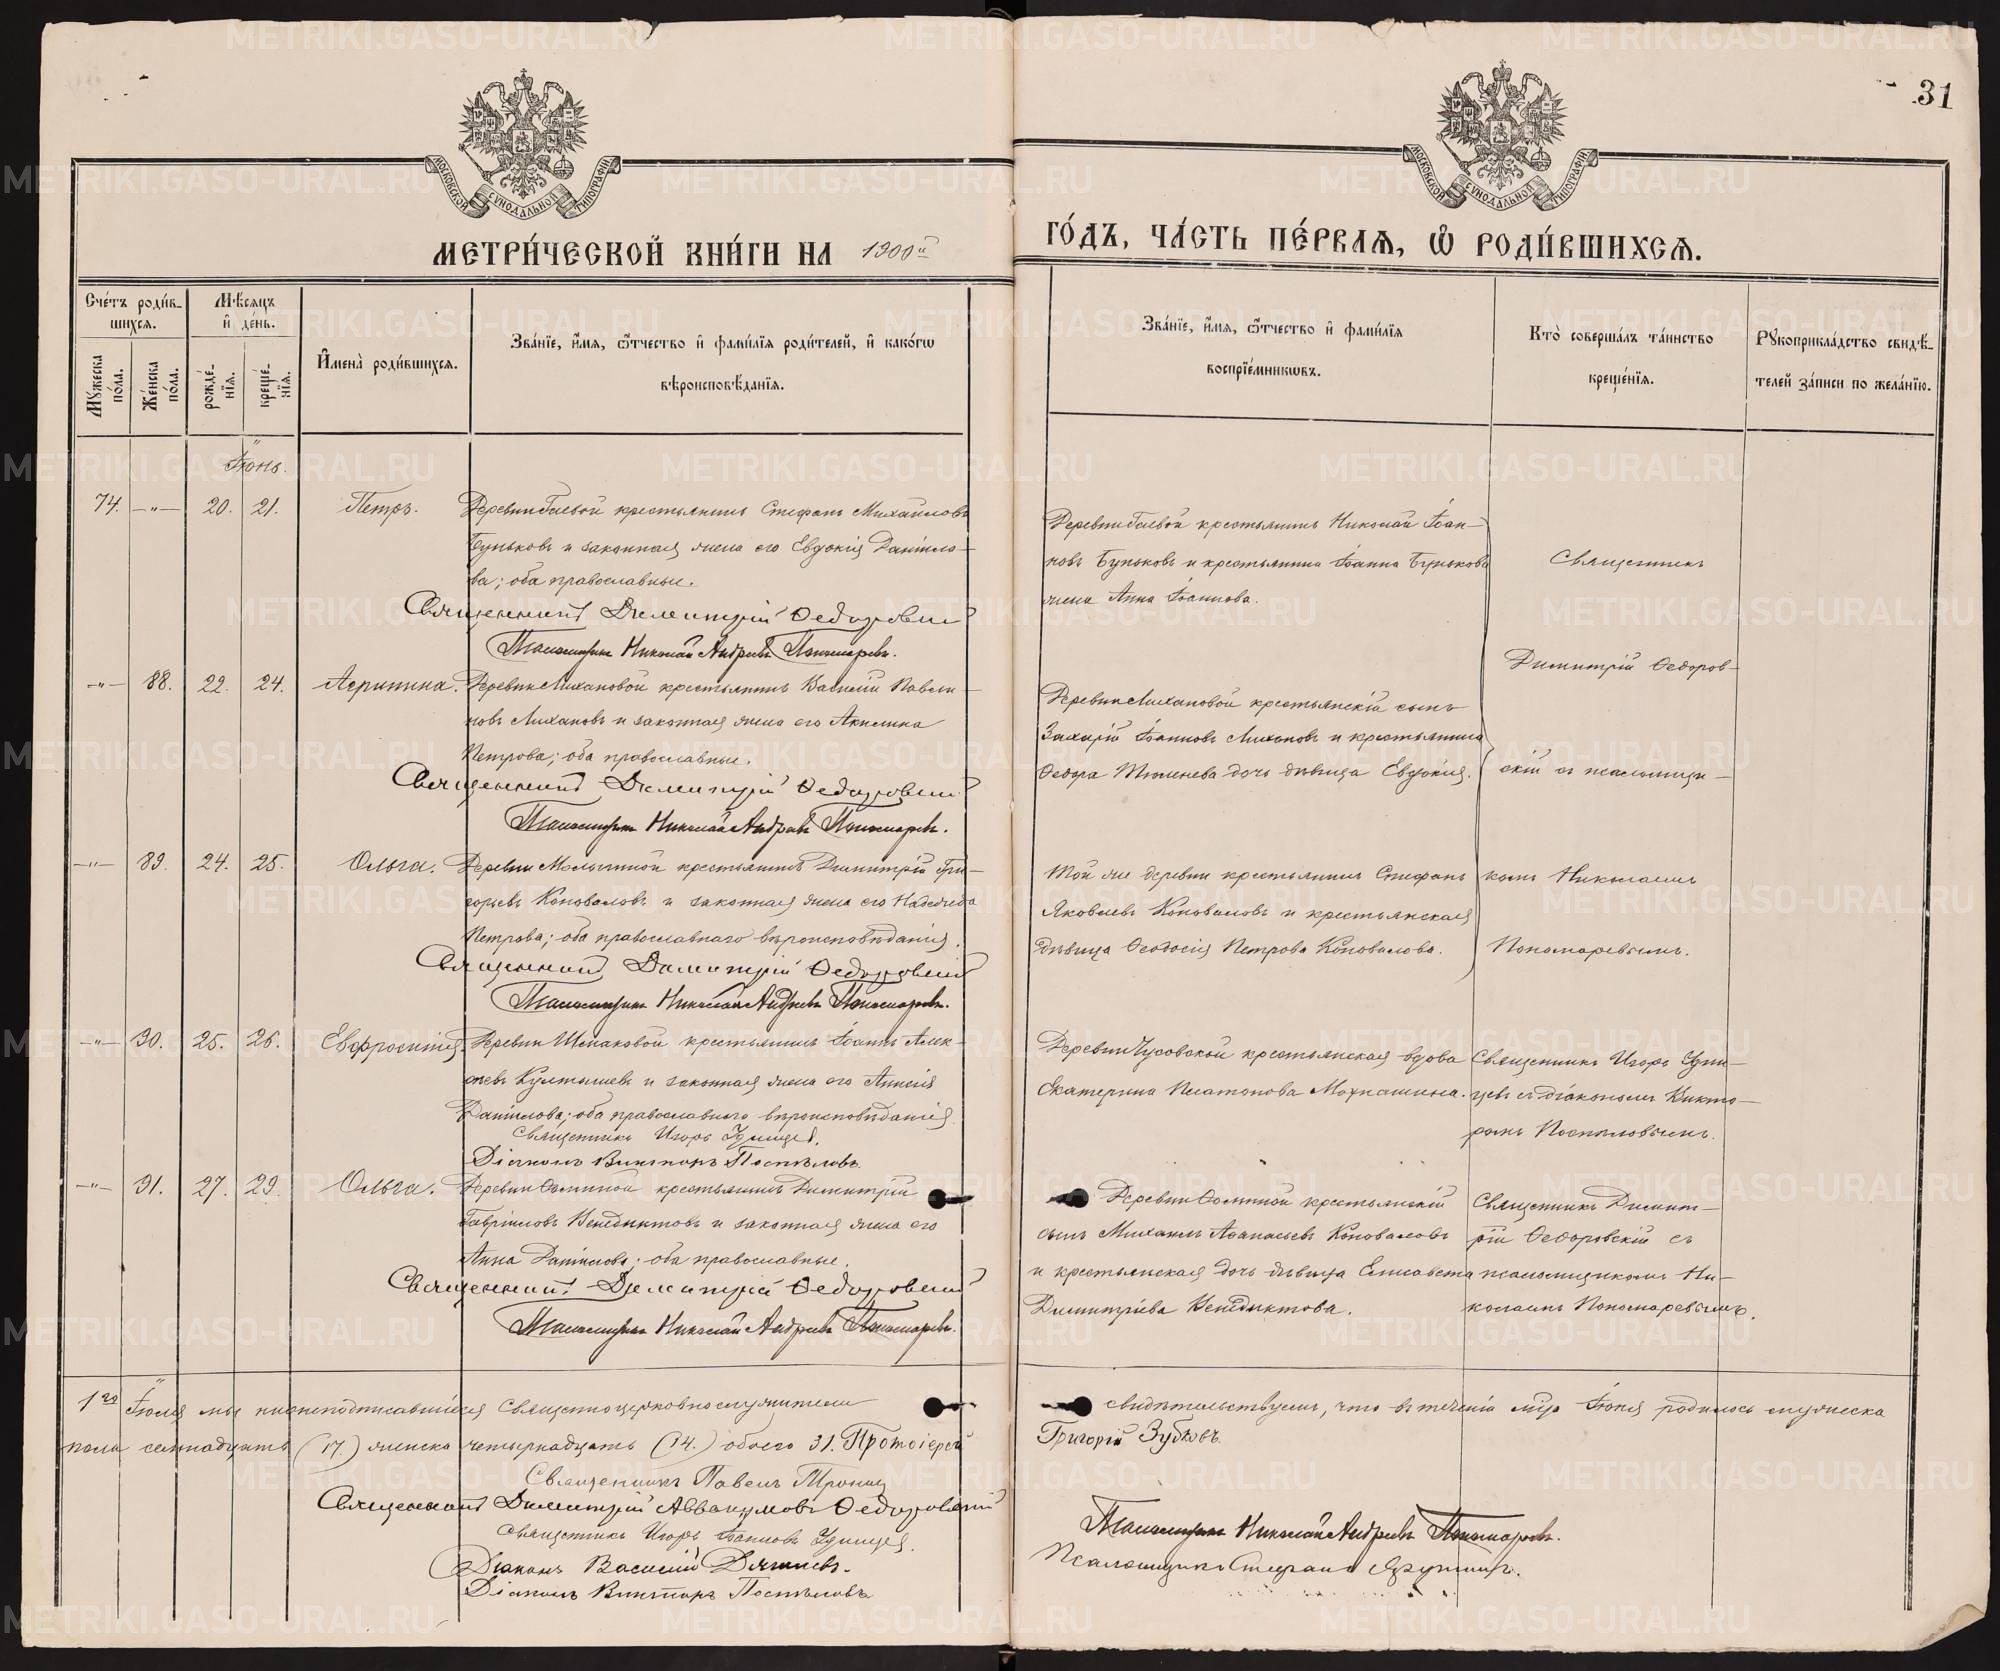 31
МОСКОВСКОЙ СѴНОДАЛЬНОЙ ТИПОГРАФІИ
МОСКОВСКОЙ СѴНОДАЛЬНОЙ ТИПОГРАФІИ
МЕТРИ́ЧЕСКОЙ КНИ́ГИ НА 1900й
ГО́ДЪ, ЧА́СТЬ ПЕ́РВАѦ, Ѡ РОДИ́ВШИХСѦ.
Сче́тъ роди́вшихсѧ.
Мꙋ́жеска по́ла.
Же́нска по́ла.
Мѣ́сѧцъ и҆ де́нь.
рожде́нїѧ.
креще́нїѧ.
И҆мена̀ роди́вшихсѧ.
Зва́нїе, и҆́мѧ, ѻ҆́тчество и҆ фами́лїѧ роди́телей, и҆ како́гѡ
вѣроисповѣ́данїѧ.
Зва́нїе, и҆́мѧ, ѻ҆́тчество и҆ фами́лїѧ
воспрїе́мникѡвъ.
Кто̀ соверша́лъ та́инство
креще́нїѧ.
Рꙋкоприкла́дство свидѣ́-
телей за́писи по жела́нїю.
Іюнь.
74. —"— 20. 21. Петръ. Деревни Гаевой крестьянинъ Стефанъ Михайловъ
Буньковъ и законная жена его Евдокія Данило-
ва; оба православные.
Священникъ Димитрій Ѳедоровскій
Псаломщикъ Николай Андреевъ Пономаревъ.
Деревни Гаевой крестьянинъ Николай Іоан-
новъ Буньковъ и крестьянина Іоанна Бунькова
жена Анна Іоаннова.
Священникъ
Димитрій Ѳедоров-
—"— 88. 22. 24. Агрипина. Деревни Лихановой крестьянинъ Василій
новъ Лихановъ и законная жена его Акилина
Петрова; оба православные.
Священникъ Димитрій Ѳедоровскій
Псаломщикъ Николай Андреевъ Пономаревъ.
Деревни Лихановой крестьянскій сынъ
Захарій Іоанновъ Лихановъ и крестьянина
Ѳедора Тюленева дочь дѣвица Евдокія.
скій съ псаломщи-
—"— 89. 24. 25. Ольга. Деревни Молыгиной крестьянинъ Димитрій Гри-
горьевъ Коноваловъ и законная жена его Надежда
Петрова; оба православнаго вѣроисповѣданія.
Священникъ Димитрій Ѳедоровскій
Псаломщикъ Николай Андреевъ Пономаревъ.
Той же деревни крестьянинъ Стефанъ
Яковлевъ Коноваловъ и крестьянская
дѣвица Ѳеодосія Петрова Коновалова.
комъ Николаемъ
Пономаревымъ.
—"— 90. 25. 26. Евфросинія. Деревни Шмаковой крестьянинъ Іоаннъ Алек-
сѣевъ Култышевъ и законная жена его
Данилова; оба православнаго вѣроисповѣданія.
Священникъ Игорь Удинцевъ.
Діаконъ Викторъ Поспѣловъ.
Деревни Чусовской крестьянская вдова
Екатерина Платонова Мохнашина.
Священникъ Игорь Удин-
цевъ съ діакономъ Викто-
ромъ Поспѣловымъ.
—"— 91. 27. 29. Ольга. Деревни Ѳоминой крестьянинъ Димитрій
Гавріиловъ Венедиктовъ и законная жена его
Анна Данилова; оба православные.
Священникъ Димитрій Ѳедоровскій
Псаломщикъ Николай Андреевъ Пономаревъ.
Деревни Ѳоминой крестьянскій
сынъ Михаилъ Аѳанасьевъ Коноваловъ
и крестьянская дочь дѣвица Елисавета
Димитріева Венедиктова.
Священникъ Димит-
рій Ѳедоровскій съ
псаломщикомъ Ни-
колаемъ Пономаревымъ.
1го Іюля мы нижеподписавшіеся священноцерковнослужители
свидѣтельствуемъ, что въ теченіи мца Іюня родилось мужеска
пола семнадцать (17.) женска четырнадцать (14.) обоего 31. Протоіерей
Григорій Зубковъ.
Священникъ Павелъ
Священникъ Димитрій Аввакумовъ Ѳедоровскій
Священникъ Игорь Іоанновъ Удинцевъ.
Діаконъ Василій Дягилевъ.
Діаконъ Викторъ Поспѣловъ
Псаломщикъ Николай Андреевъ Пономаревъ.
Псаломщикъ Стефанъ